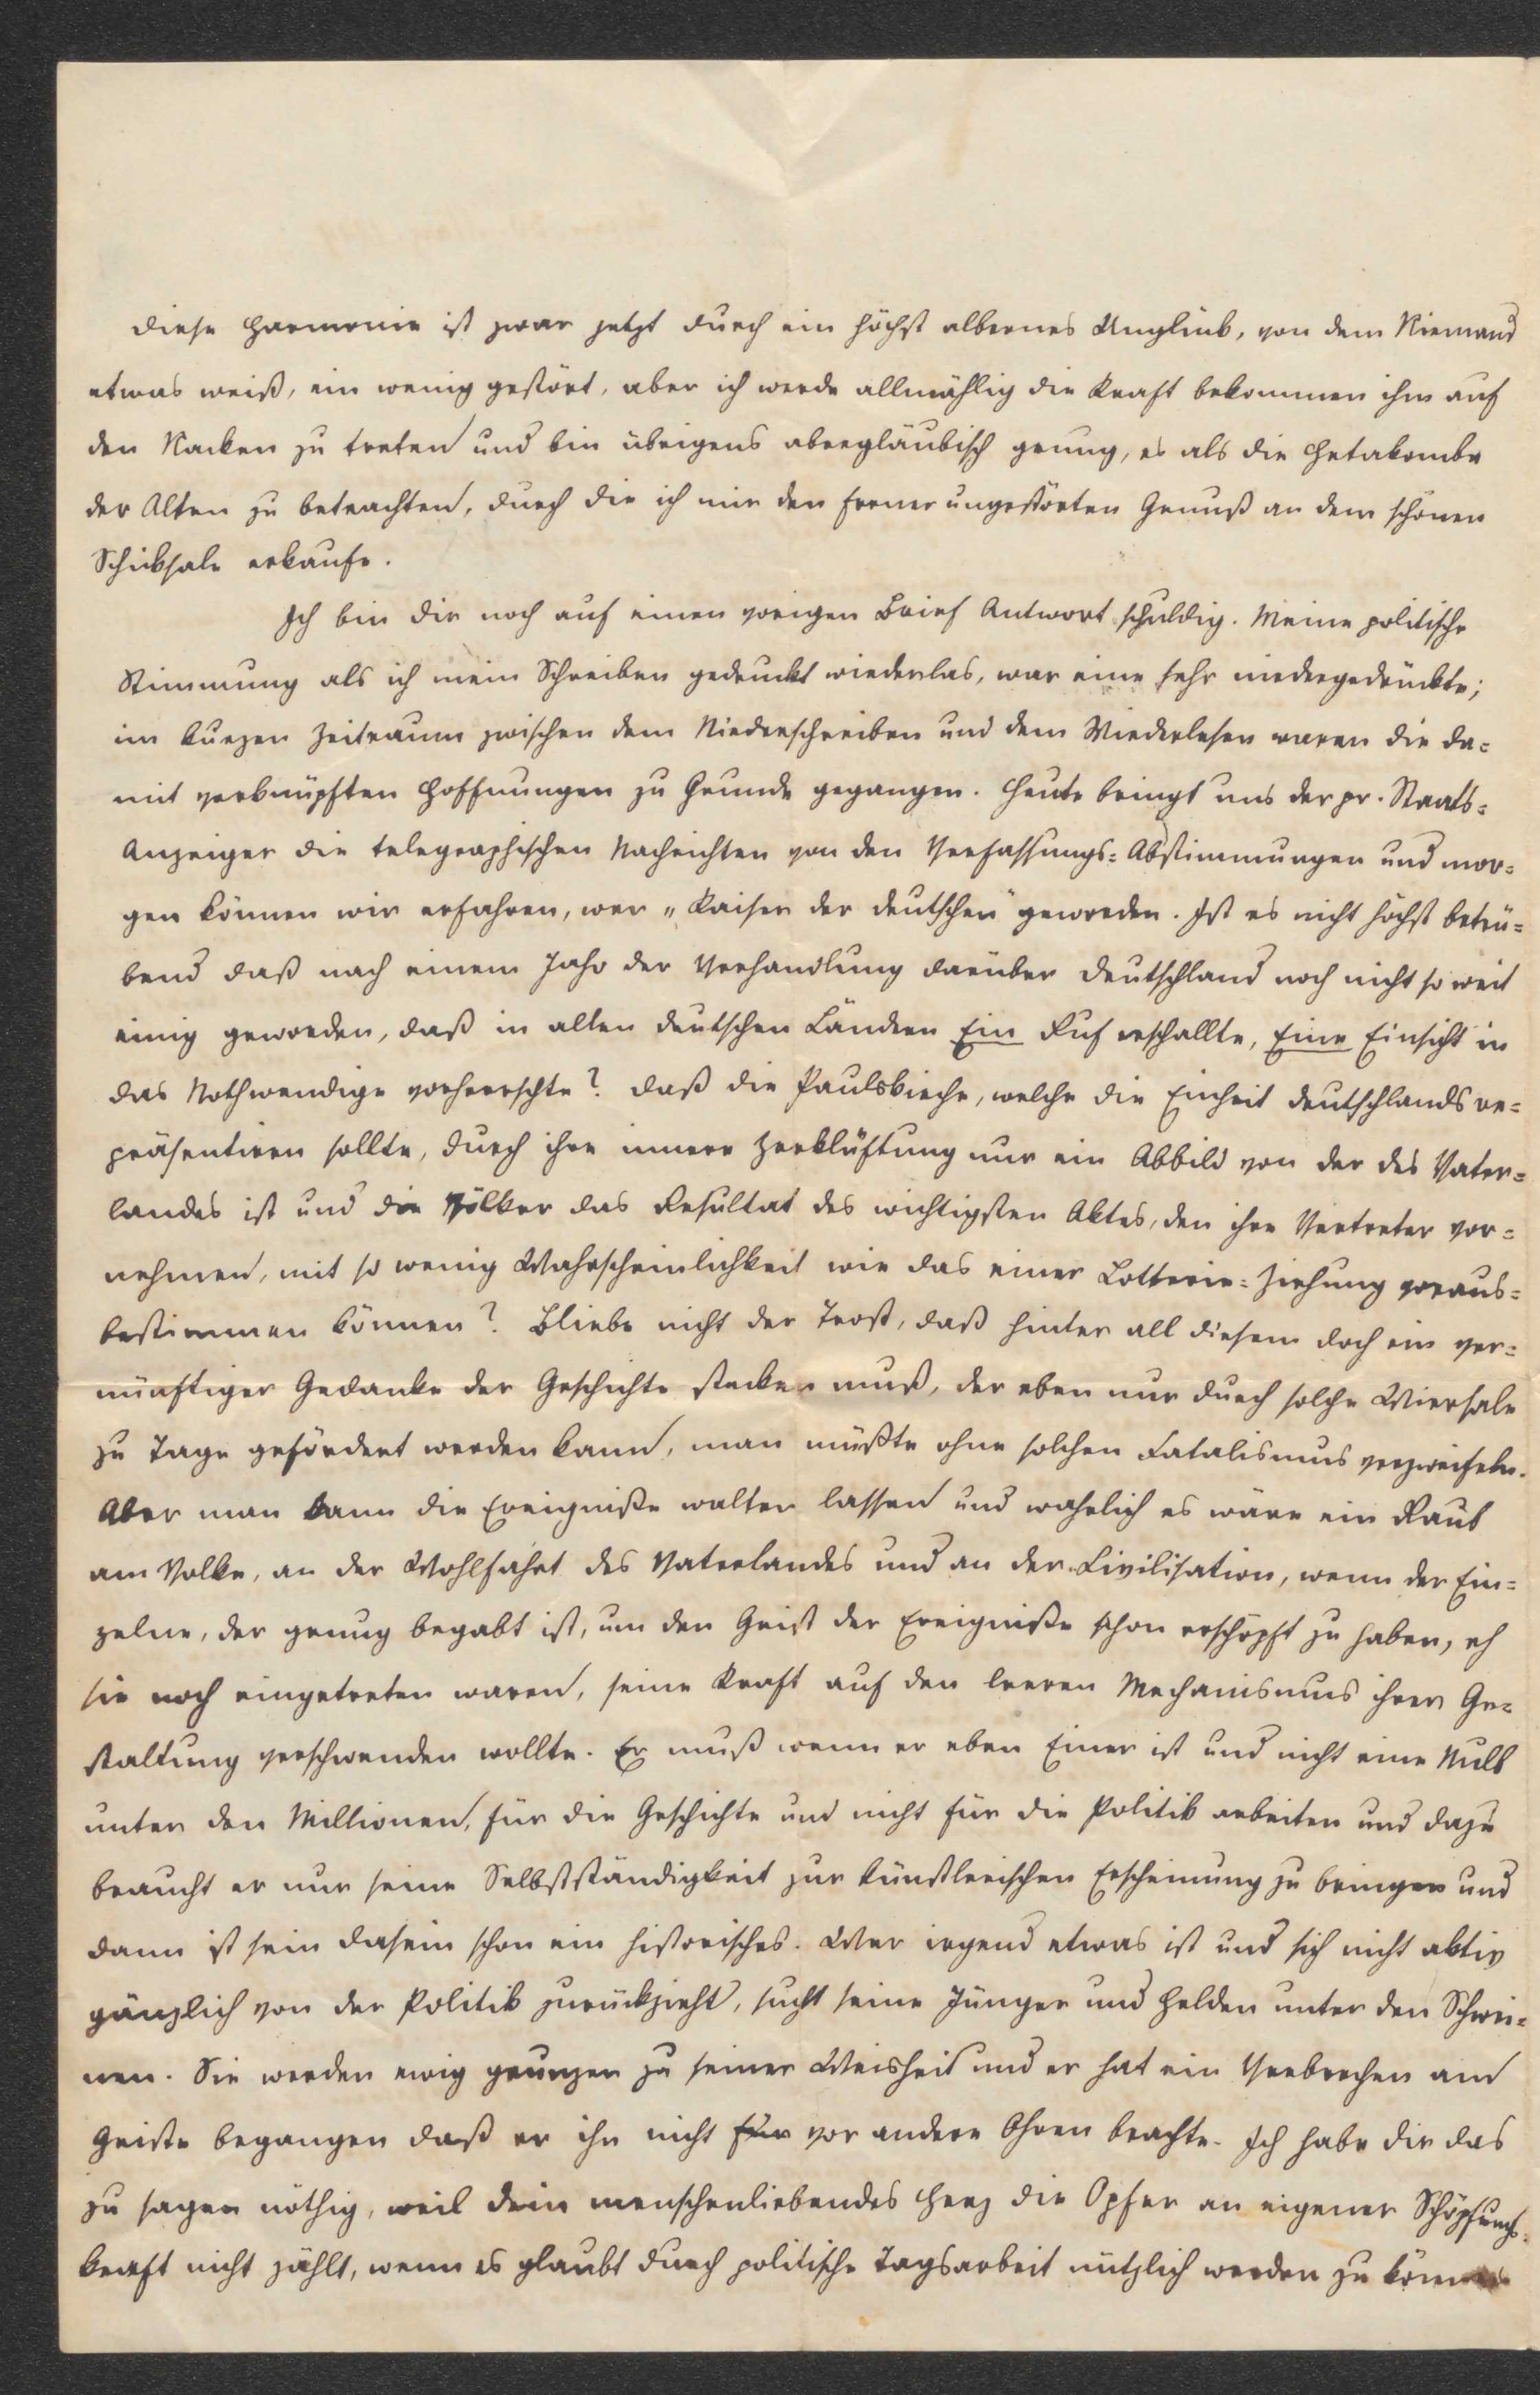 Diese Harmonie ist zwar jetzt durch ein höchst albernes Unglück, von dem Niemand
etwas weiß, ein wenig gestört, aber ich werde allmählig die Kraft bekommen ihm auf
den Nacken zu treten und bin übrigens abergläubisch genug, es als die Hetakombe
der Alten zu betrachten, durch die ich mir den ferner ungestörten Genuß an dem schönen
Schicksale erkaufe.
Ich bin Dir noch auf einen vorigen Brief Antwort schuldig. Meine politische
Stimmung als ich mein Schreiben gedruckt wiederlas, war eine sehr niedergedrückte;
im kurzen Zeitraum zwischen dem Niederschreiben und dem Wiederlesen waren die da=
mit verknüpften Hoffnungen zu Grunde gegangen. Heute bringt uns der pr. Staats=
Anzeiger die telegraphischen Nachrichten von den Verfassungs=Abstimmungen und mor=
gen können wir erfahren, wer „Kaiser der Deutschen" geworden. Ist es nicht höchst betrü=
bend daß nach einem Jahr der Verhandlung darüber Deutschland noch nicht so weit
einig geworden, daß in allen deutschen Ländern Ein Ruf erschallte, Eine Einsicht in
das Nothwendige vorherrschte? Daß die Paulskirche, welche die Einheit Deutschlands re=
präsentiren sollte, durch ihre innere Zerklüftung nur ein Abbild von der des Vater=
landes ist und die Völker das Resultat des wichtigsten Aktes, den ihre Vertreter vor=
nehmen, mit so wenig Wahrscheinlichkeit wie das einer Lotterie=Ziehung voraus=
bestimmen können? Bliebe nicht der Trost, daß hinter all diesem doch ein ver=
nünftiger Gedanke der Geschichte stecken muß, der eben nur durch solche Wirrsale
zu Tage gefördert werden kann, man müßte ohne solchen Fatalismus verzweifeln.
Aber man kann die Ereigniße walten lassen und wahrlich es wäre ein Raub
am Volke, an der Wohlfahrt des Vaterlandes und an der Civilisation, wenn der Ein=
zelne, der genug begabt ist, um den Geist der Ereigniße schon erschöpft zu haben, eh
sie noch eingetreten waren, seine Kraft auf den leeren Mechanismus ihrer Ge=
staltung verschwenden wollte. Er muß wenn er eben Einer ist und nicht eine Null
unter den Millionen, für die Geschichte und nicht für die Politik arbeiten und dazu
braucht er nur seine Selbstständigkeit zur künstlerischen Erscheinung zu bringen und
dann ist sein Dasein schon ein historisches. Wer irgend etwas ist und sich nicht aktiv
gänzlich von der Politik zurückzieht, sucht seine Jünger und Helden unter den Schwei=
nen. Sie werden ewig grunzen zu seiner Weisheit und er hat ein Verbrechen am
Geiste begangen daß er ihn nicht für vor andere Ohren brachte. Ich habe Dir das
zu sagen nöthig, weil Dein menschenliebendes Herz die Opfer an eigener Schöpfungs=
kraft nicht zählt, wenn es glaubt durch politische Tagsarbeit nützlich werden zu können